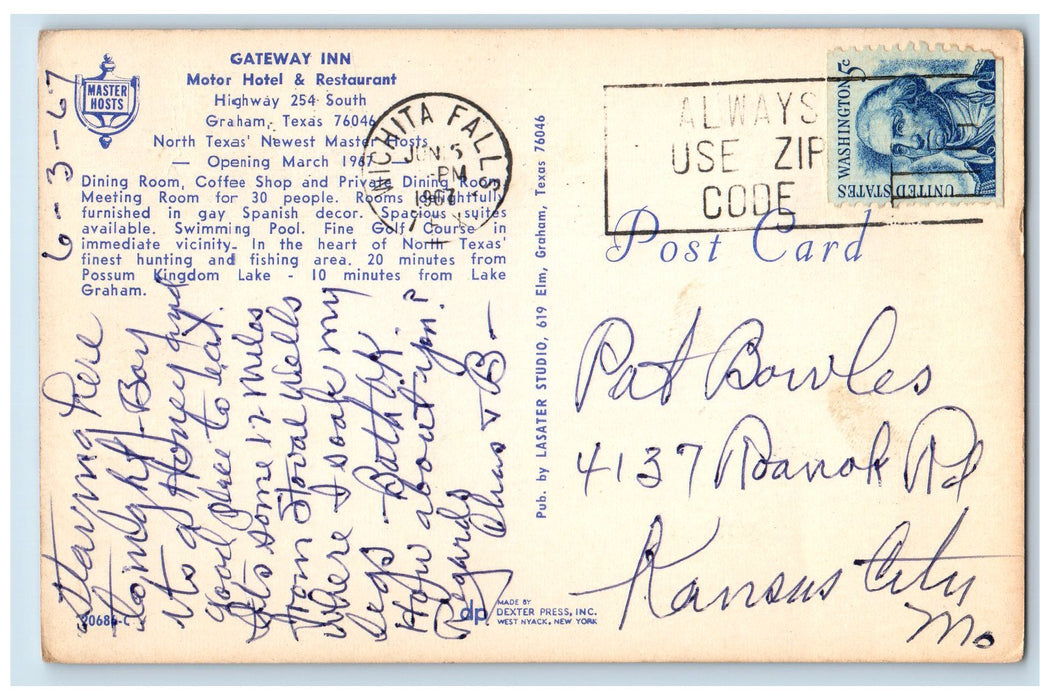 MASTER
HOSTS
GATEWAY INN
Motor Hotel & Restaurant
Highway 254 South
Graham, Texas 76046
North Texas' Newest Master Hosts
— Opening March 1967 —
Dining Room, Coffee Shop and Private Dining Room
Meeting Room for 30 people. Rooms delightfully
furnished in gay Spanish decor. Spacious suites
available. Swimming Pool. Fine Golf Course in
immediate vicinity. In the heart of North Texas'
finest hunting and fishing area. 20 minutes from
Possum Kingdom Lake - 10 minutes from Lake
Graham.
6-3-67
Staying here
tonight Boy
its a Honey and
good place to eat.
Its some 12 miles
from Stovall Wells
where I soak my
legs
How about you?
Regards
Chas & B-
20684-C
dp
MADE BY
DEXTER PRESS, INC.
WEST NYACK, NEW YORK
Pub. by LASATER STUDIO, 619 Elm, Graham, Texas 76046
WICHITA FALLS
JUN 5
PM
1967
ALWAYS
USE ZIP
CODE
WASHINGTON 5c
UNITED STATES
Post Card
Pat Bowles
4137 Roanok Rd
Kansas City
Mo